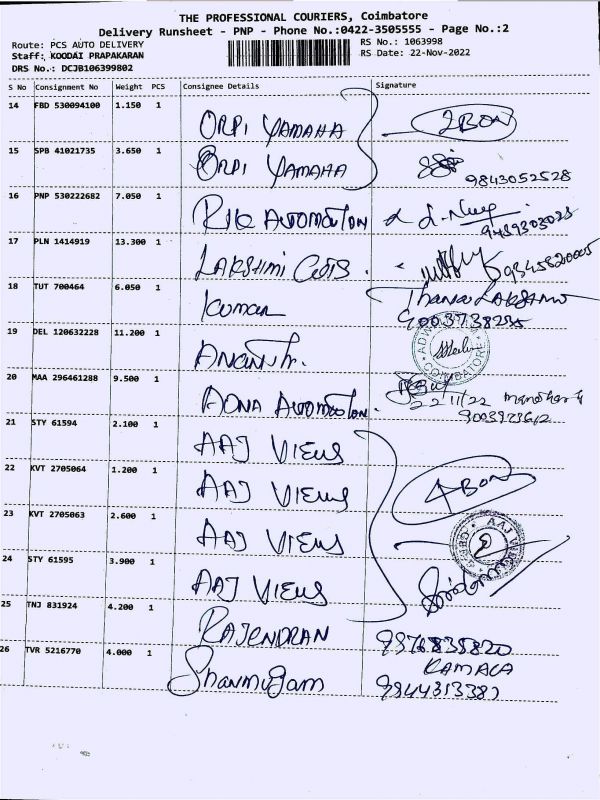 THE PROFESSIONAL COURIERS, Coimbatore
Delivery Runsheet - PNP - Phone No.:0422-3505555 - Page No.:2
Route: PCS AUTO DELIVERY
RS No.: 1063998
Staff: KOODAI PRAPAKARAN
RS Date: 22-Nov-2022
DRS No.: DCJB106399802
S No Consignment No Weight PCS Consignee Details Signature
14 FBD 530094100 1.150 1 ORPI YAMAHA 2 BOX
15 SPB 41021735 3.650 1 ORPI YAMAHA
9843052528
16 PNP 530222682 7.050 1 AUTOMATION
17 PLN 1414919 13.300 1 LAKSHMI
18 TUT 700464 6.050 1 Kumar
19 DEL 120632228 11.200 1
COIMBATORE
20 MAA 296461288 9.500 1 AUTOMATION
22/11/22
21 STY 61594 2.100 1 AAJ VIEWS
22 KVT 2705064 1.200 1 AAJ VIEWS 4 BOX
23 KVT 2705063 2.600 1 AAJ VIEWS
24 STY 61595 3.900 1 AAJ VIEWS
25 TNJ 831924 4.200 1 RAJENDRAN 9376835820
26 TVR 5216770 4.000 1 Shanmugam KAMALA